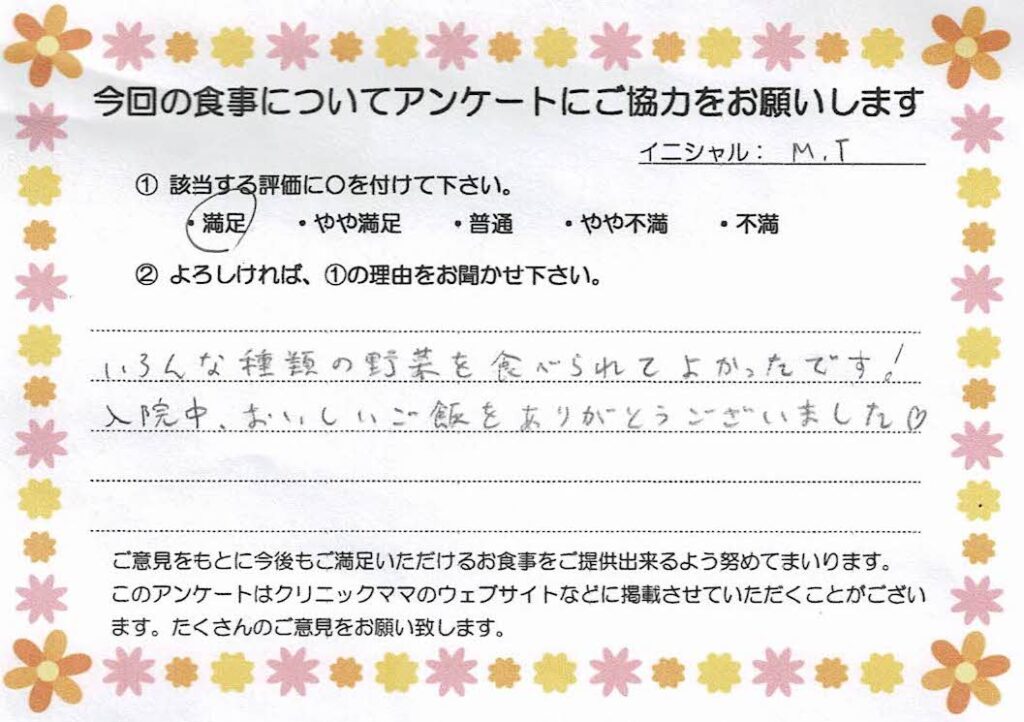 今回の食事についてアンケートにご協力をお願いします
イニシャル： M.T
① 該当する評価に〇を付けて下さい。
・満足 ・やや満足 ・普通 ・やや不満 ・不満
② よろしければ、①の理由をお聞かせ下さい。
いろんな種類の野菜を食べられてよかったです！
入院中、おいしいご飯をありがとうございました♡
ご意見をもとに今後もご満足いただけるお食事をご提供出来るよう努めてまいります。
このアンケートはクリニックママのウェブサイトなどに掲載させていただくことがござい
ます。たくさんのご意見をお願い致します。